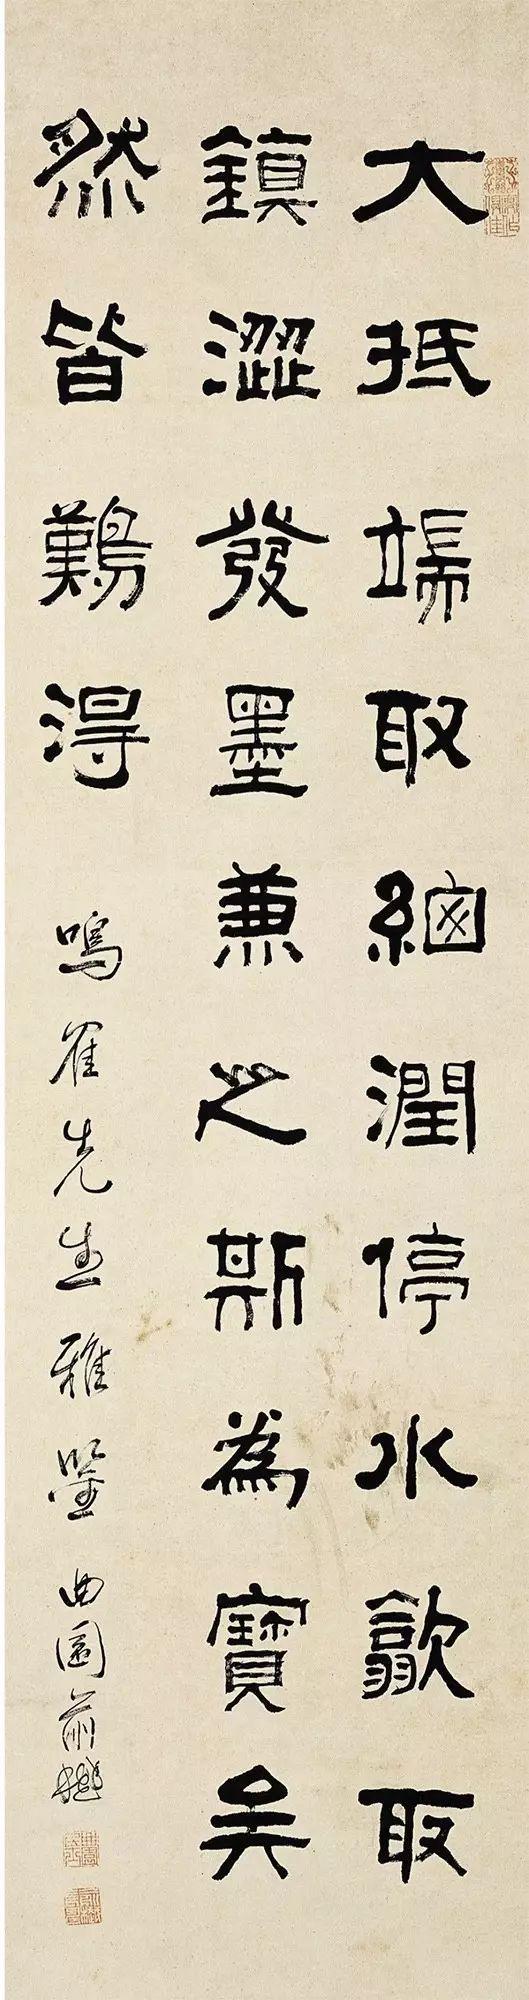 大抵端取細潤停水歙取
鎮澀發墨兼之斯為寶矣
然皆難得
鳴雀先生雅鑒 曲園俞樾